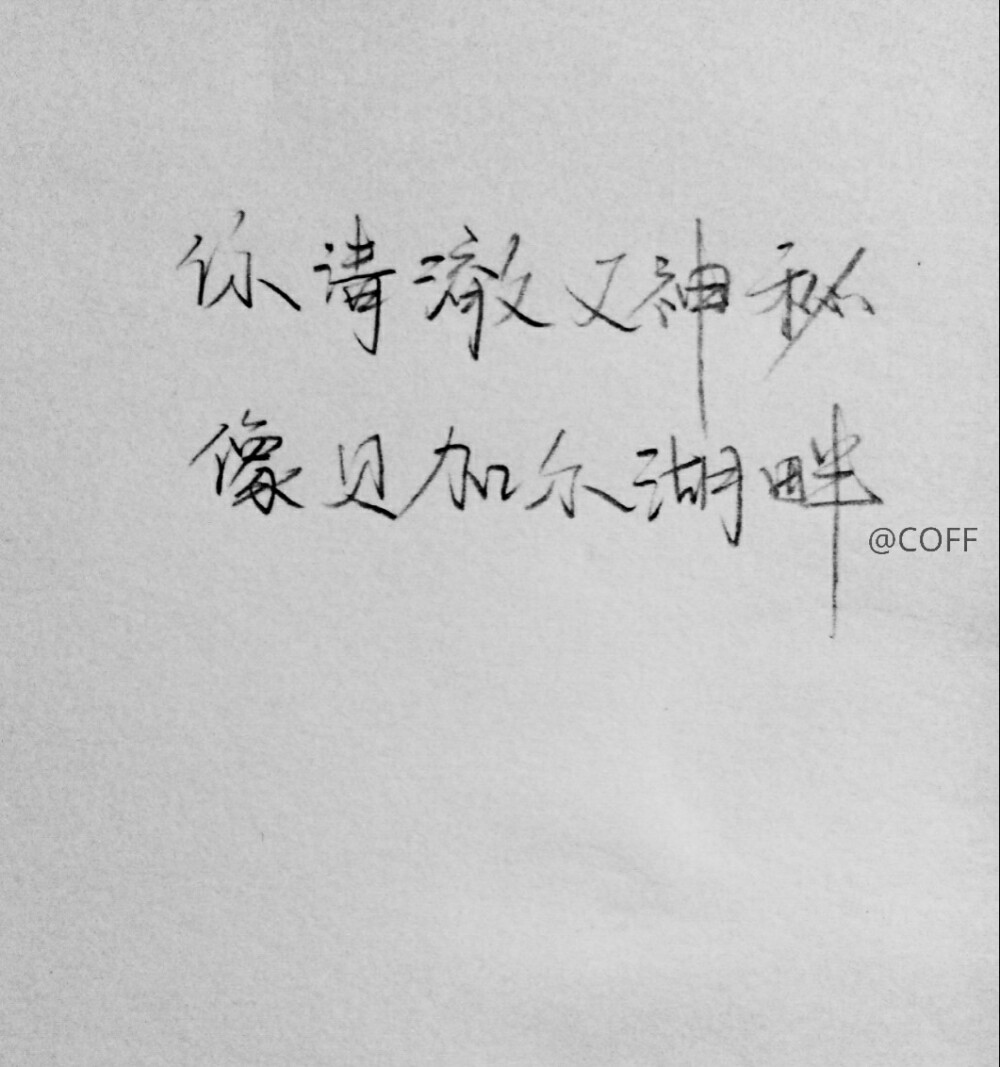 你清澈又神秘
像贝加尔湖畔
@COFF